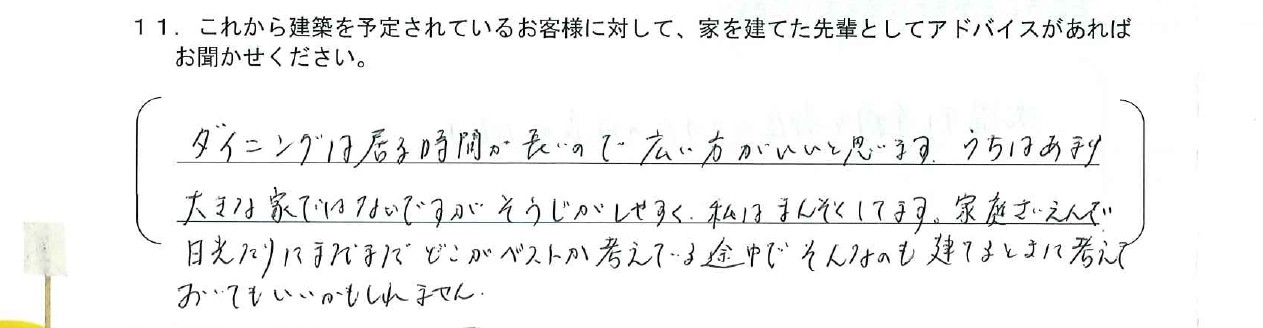 11．これから建築を予定されているお客様に対して、家を建てた先輩としてアドバイスがあれば
お聞かせください。
ダイニングは居る時間が長いので広い方がいいと思います。うちはあまり
大きな家ではないですがそうじがしやすく、私はまんぞくしてます。家庭さいえんで
日光だりにまだまだどこがベストか考えている途中でそんなのも建てるときに考えて
おいてもいいかもしれません。